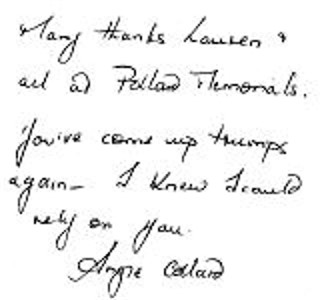 Many thanks Lauren &
all at Pollard Memorials.
You've come up trumps
again - I knew I could
rely on you.
Angie Collard